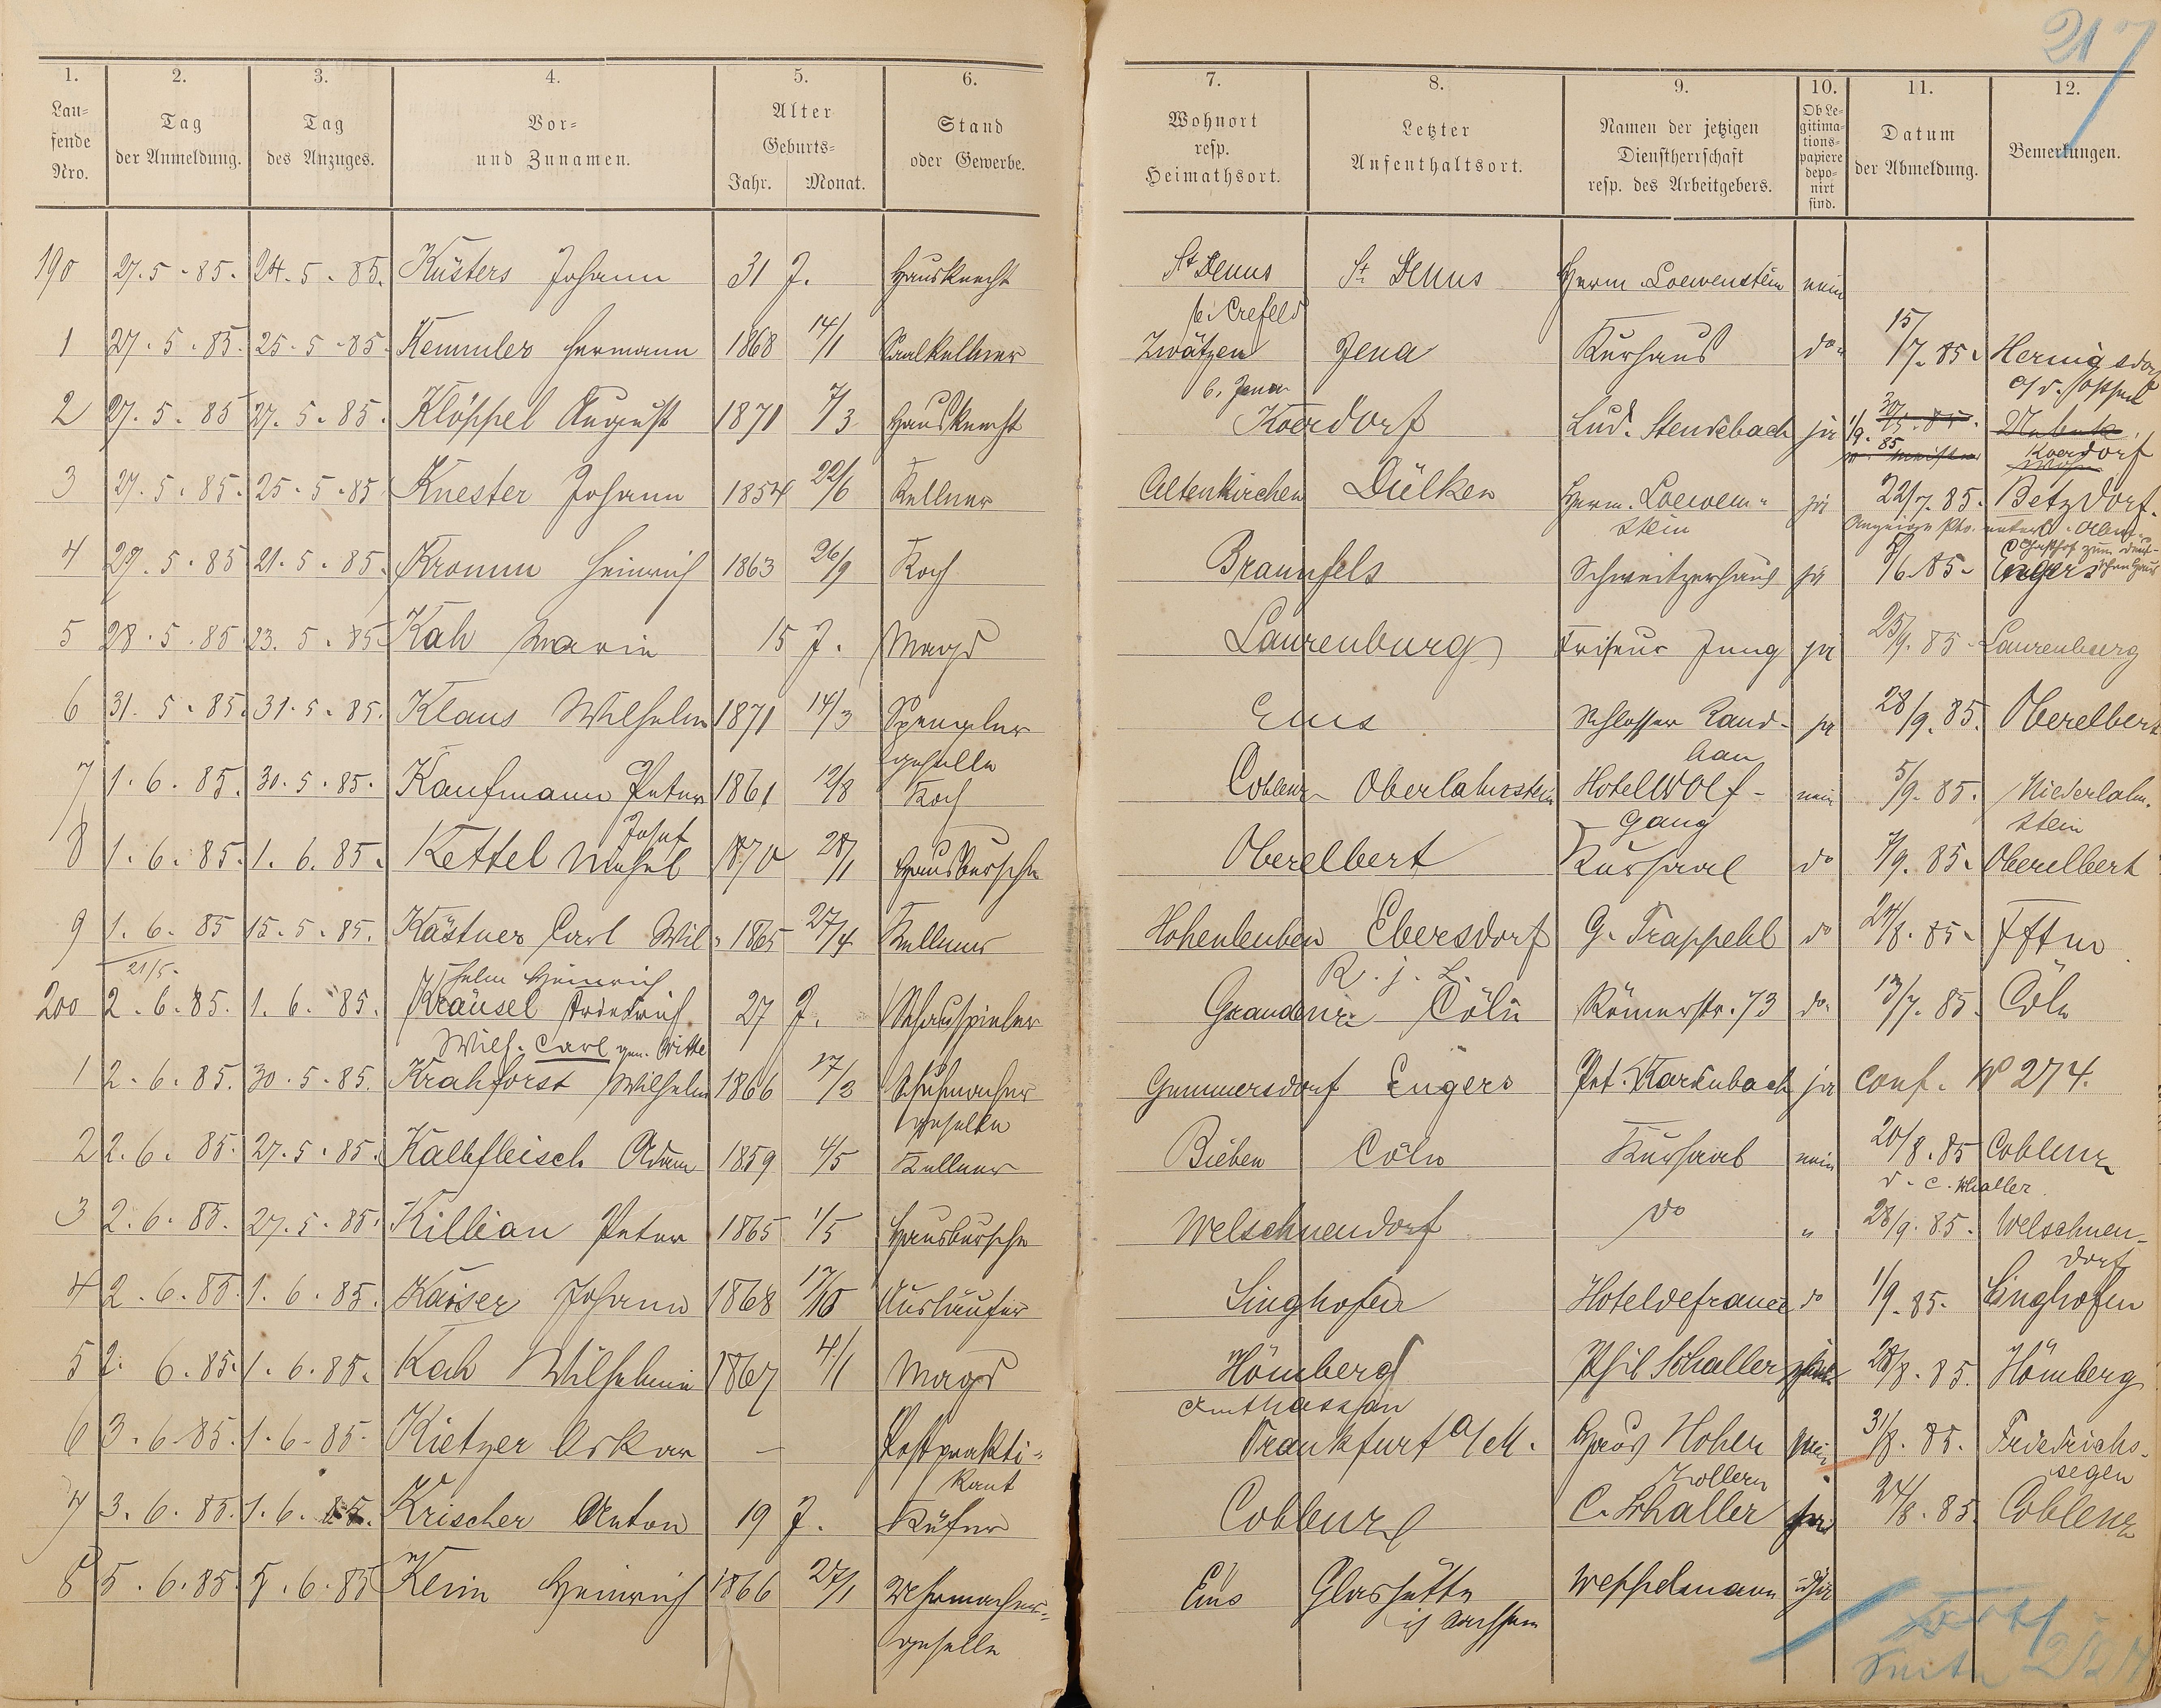 217
1. 2. 3. 4. 5. 6. 7. 8. 9. 10. 11. 12.
Lau-
fende
Nro.
Tag
der Anmeldung.
Tag
des Anzuges.
Vor-
und Zunamen.
Alter
Geburts-
Jahr. Monat.
Stand
oder Gewerbe.
Wohnort
resp.
Heimathsort.
Letzter
Aufenthaltsort.
Namen der jetzigen
Dienstherrschaft
resp. des Arbeitgebers.
Ob Le-
gitima-
tions-
papiere
depo-
nirt
sind.
Datum
der Abmeldung.
Bemerkungen.
190 27.5.85. 24.5.85. Küsters Johann 31 J. Hausknecht St Denus St. Denus Herm. Loewenstein nein
b. Crefeld
1 27.5.85. 25.5.85. Kemmler Hermann 1868 14/1 Saalkellner Zwätzen Jena Kurhaus do. 15/7.85. Hernigsdorf
b. Jena
2 27.5.85 27.5.85. Klöppel August 1871 7/3 Hausknecht Koerdorf Lud. Stendebach ja 1/9.85 Koerdorf
3 27.5.85. 25.5.85 Knester Johann 1854 22/6 Kellner Altenkirchen Dülken Herm. Loewen- ja 22/7.85. Betzdorf.
stein
4 27.5.85 21.5.85. Kromm Heinrich 1863 26/9 Koch Braunfels Schweitzerhaus ja /6.85. Engers
5 28.5.85 23.5.85. Kah Marie 15 J. Magd Laurenburg Friseur Jung ja 25/9.85. Laurenburg
6 31.5.85. 31.5.85. Klaus Wilhelm 1871 14/3 Spengler Ems Schlosser Land- ja 28/9.85. Oberelbert
geselle
7 1.6.85. 30.5.85. Kaufmann Peter 1861 12/8 Koch Coblenz Oberlahnstein Hotel Wolf- nein 5/9.85. Niederlahn-
gang stein
Josef
8 1.6.85. 1.6.85. Kettel 1870 28/1 Hausbursche Oberelbert Kursaal do /9.85. Oberelbert
9 1.6.85 15.5.85. Kästner Carl Wil- 1865 27/4 Kellner Hohenleuben Ebersdorf G. Trappehl do 24/8.85.
21/5. helm Heinrich R. j. L.
200 2.6.85. 1.6.85. Kräusel Friedrich 27 J. Schauspieler Graudenz Cöln Römerstr. 73 do. 13/7.85. Cöln
Wilh. Carl gen. Witte
1 2.6.85. 30.5.85. Krahforst Wilhelm 1866 17/3 Schuhmacher Gummersdorf Engers Pet. Kardenbach ja conf. No 274.
geselle
2 2.6.85. 27.5.85. Kalbfleisch Adam 1859 4/5 Kellner Bieben Cöln Kursaal nein 20/8.85 Coblenz
v. C. Schaller
3 2.6.85. 27.5.85. Killian Peter 1865 1/5 Hausbursche Welschneudorf do " 28/9.85. Welschneu-
dorf
4 2.6.85. 1.6.85. Kaiser Johann 1868 17/10 Ausläufer Singhofen Hotel de france do 1/9.85. Singhofen
5 2.6.85. 1.6.85. Kah Wilhelmine 1867 4/1 Magd Hömberg Phil Schaller 28/8.85. Hömberg
Amt Nassau
6 3.6.85. 1.6.85. Kietzer Oskar — Postprakti- Frankfurt a/M. Haus Hohen 31/8.85. Friedrichs-
kant zollern segen
7 3.6.85. 1.6.85. Krischer Anton 19 J. Küfer Coblenz C. Schaller ja 24/8.85. Coblenz
8 5.6.85. 5.6.85 Keim Heinrich 1866 27/1 Uhrmacher- Ems Glashütte Weppelmann
geselle in Sachsen
Seite